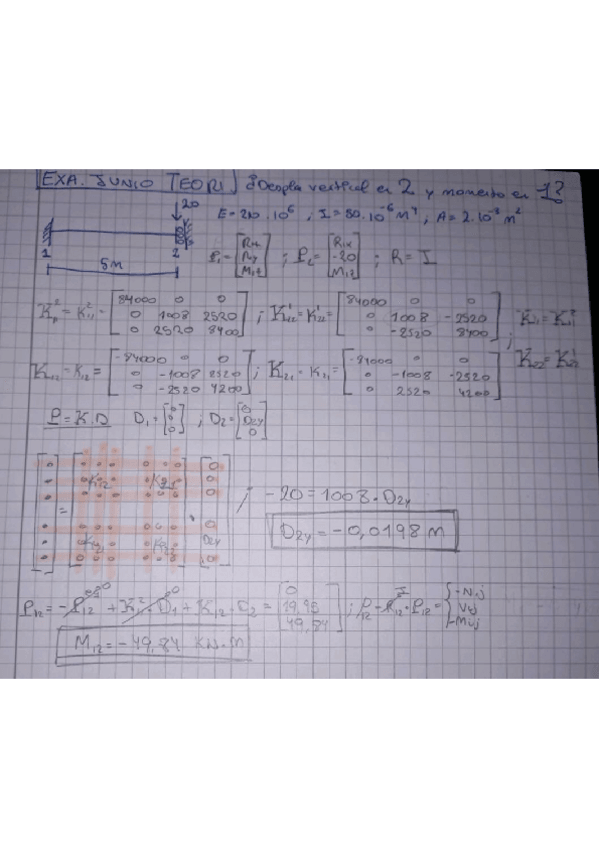 EXA. JUNIO TEORI ¿Despla vertical en 2 y momento en 1?
20
E=210·10⁶, I=50·10⁻⁶m⁴; A=2·10⁻³m²
1 2
5m
P₁=[Rx Ry M₁z]; P₂=[R₁x -20 M₁z]; R=I
K₁₁²=[84000 0 0
0 1008 2520
0 2520 8400]; K₂₂¹=K₂₂¹=[84000 0 0
0 1008 -2520
0 -2520 8400]; K₁₁=K₁₁²
K₂₂=K₂₂¹
K₁₂=K₁₂=[-84000 0 0
0 -1008 2520
0 -2520 4200]; K₂₁=K₂₁=[-84000 0 0
0 -1008 -2520
0 2520 4200]
P=K.D D₁=[0 0 0]; D₂=[0 D2y 0]
K₁₂ K₂₁
; -20=1008·D2y
D2y=-0,0198 m
D2y
P₁₂=-P₁₂+K₁₁²·D₁+K₁₂·D₂=[0 19,95 49,84]; P₁₂=R₁₂·P₁₂={-Nij Vij -Mij
M₁₂=-49,84 KN·m